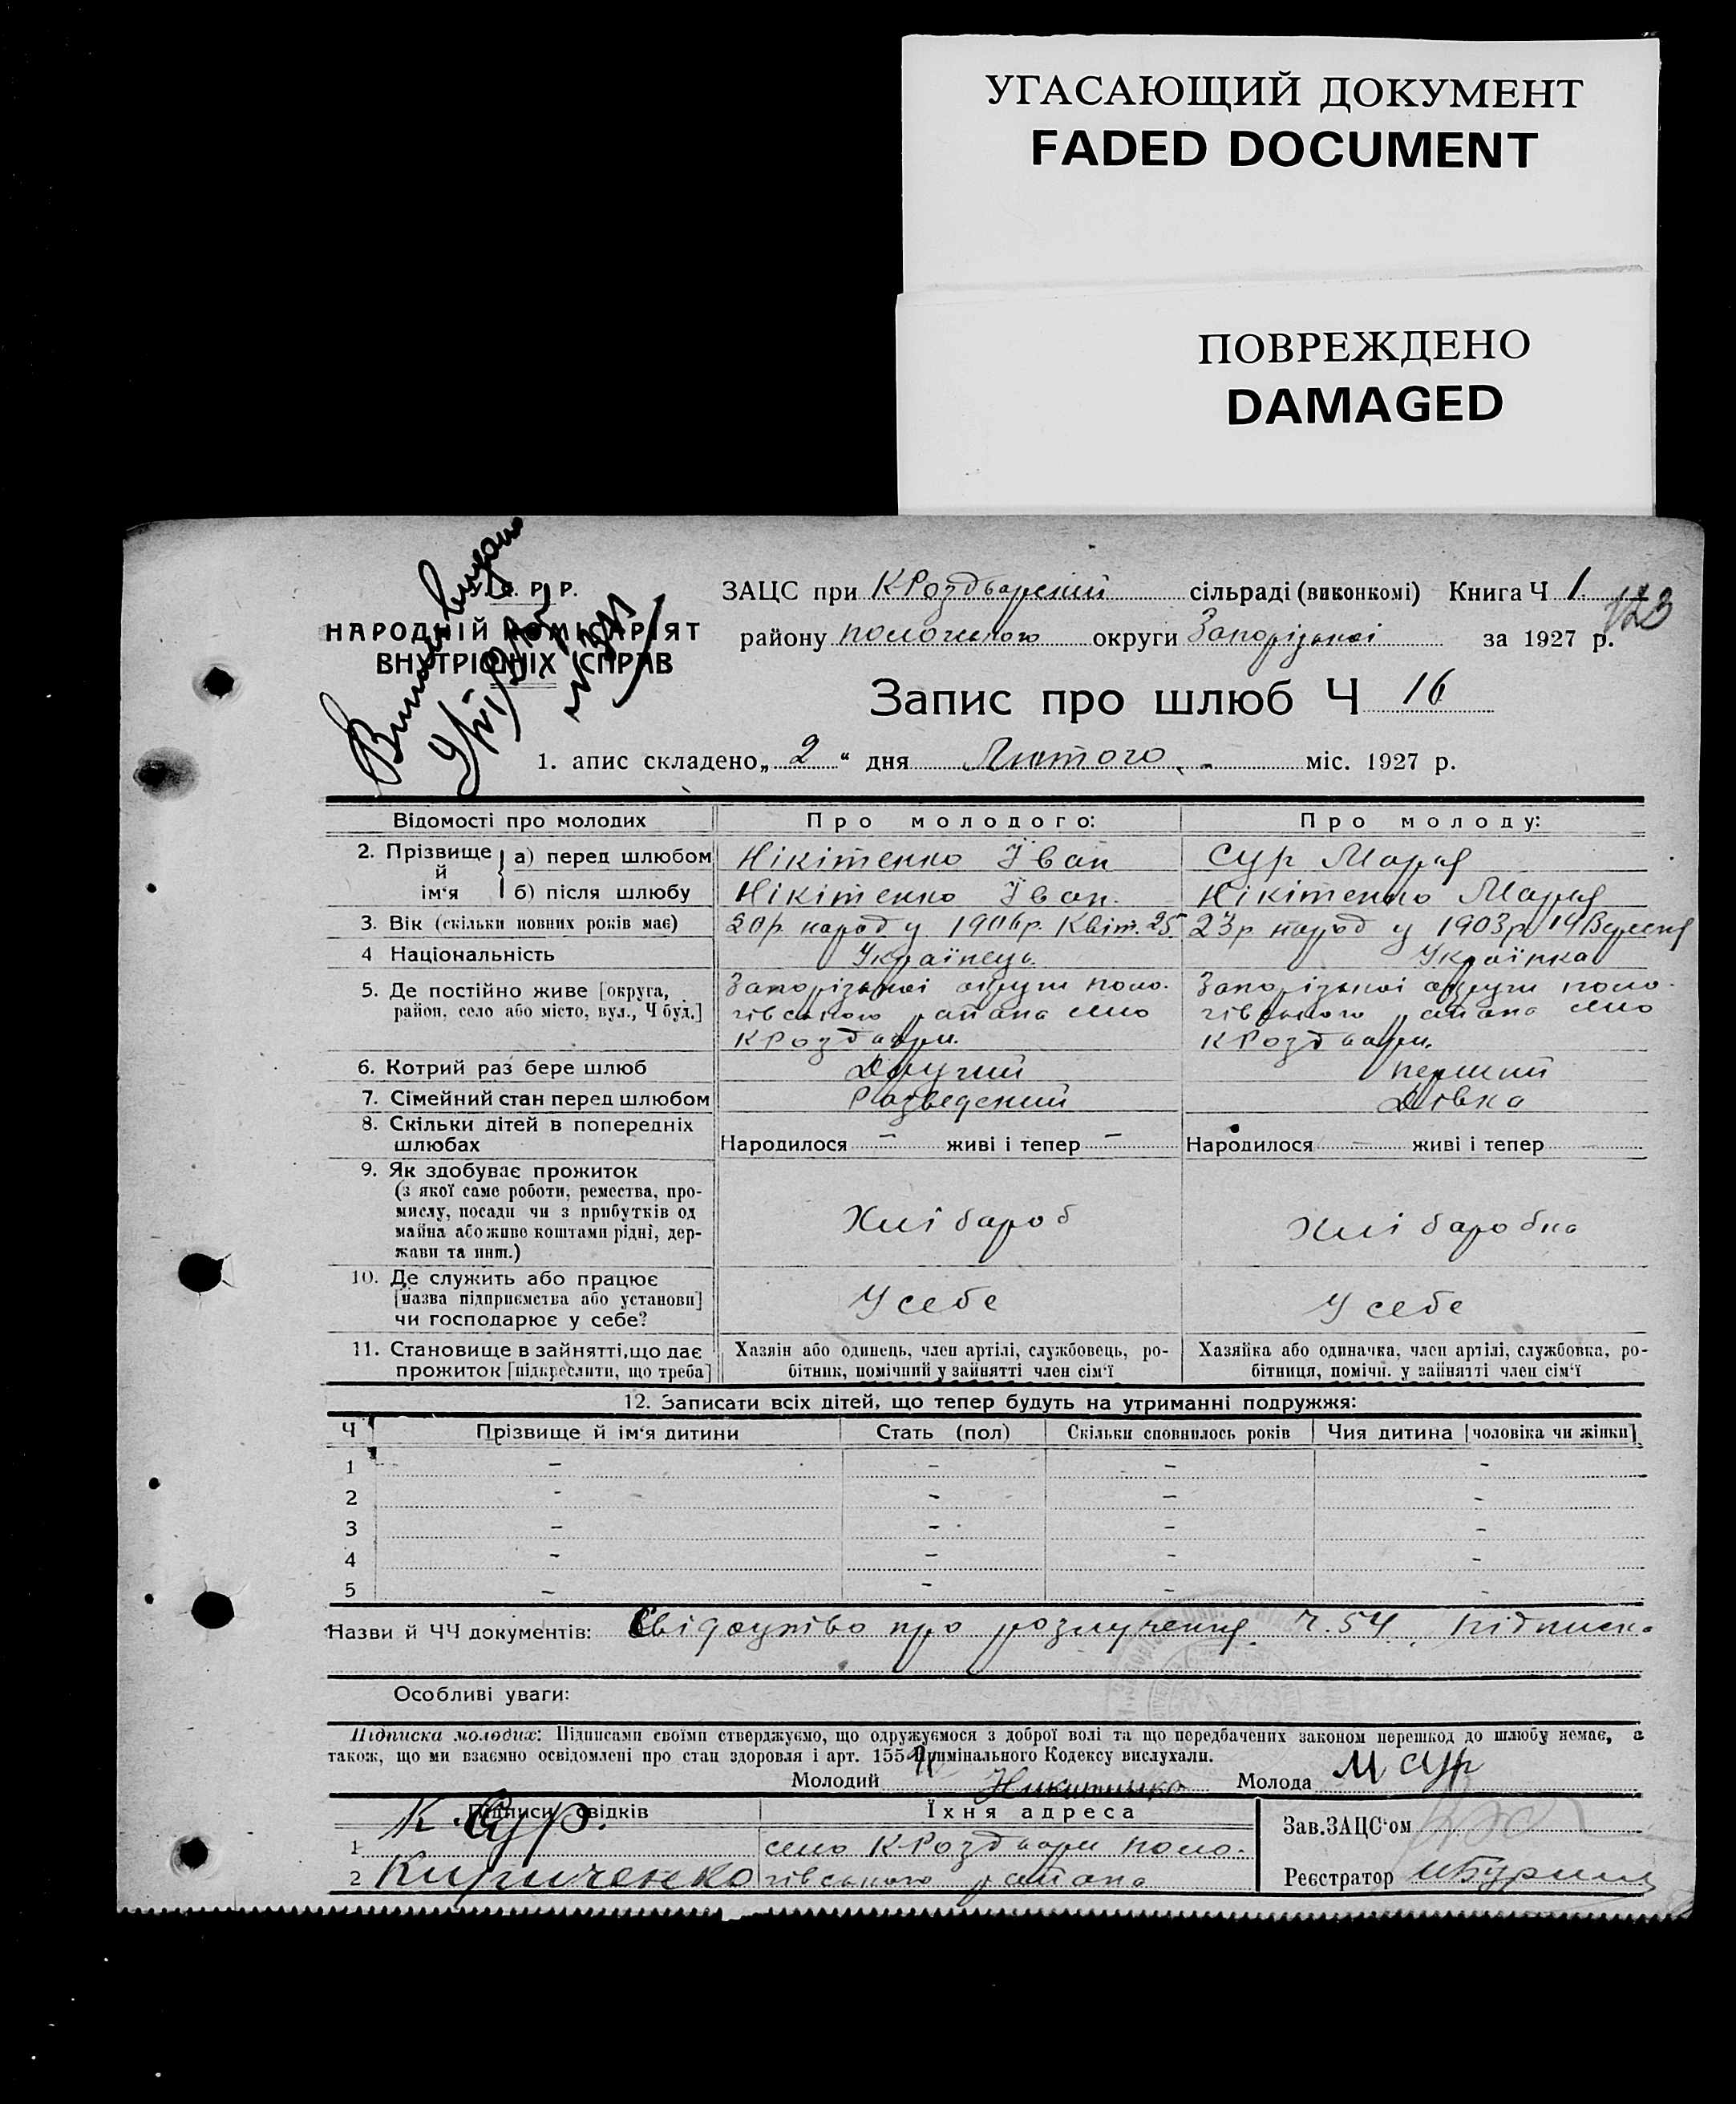 УГАСАЮЩИЙ ДОКУМЕНТ
FADED DOCUMENT
ПОВРЕЖДЕНО
DAMAGED
У. С. Р. Р.
НАРОДНІЙ КОМІСАРІЯТ
ВНУТРІШНІХ СПРАВ
ЗАЦС при КРоздварский сільраді (виконкомі) Книга Ч 1.
123
району пологського округи Запорізької за 1927 р.
Запис про шлюб Ч 16
1. апис складено „ 2 “ дня Лютого міс. 1927 р.
Відомості про молодих Про молодого: Про молоду:
2. Прізвище й ім‘я а) перед шлюбом Нікітенко Іван Сур Марія
б) після шлюбу Нікітенко Іван. Нікітенко Марія
3. Вік (скільки повних років має) 20р. народ у 1906р. Квіт. 25. 23р народ у 1903р 14 Вересня
4 Національність Українець Українка
5. Де постійно живе [округа, Запорізької округи поло- Запорізької округи поло-
район, село або місто, вул., Ч буд.] гівського района село гівського района село
КРоздвори. КРоздвори.
6. Котрий раз бере шлюб Другий перший
7. Сімейний стан перед шлюбом Розведений Дівка
8. Скільки дітей в попередніх
шлюбах Народилося – живі і тепер – Народилося – живі і тепер
9. Як здобуває прожиток
(з якої саме роботи, ремества, про-
мислу, посади чи з прибутків од
майна або живе коштами рідні, дер-
жави та инш.)
Хлібароб Хлібаробка
10. Де служить або працює
[назва підприємства або установи]
чи господарює у себе?
У себе У себе
11. Становище в зайнятті, що дає Хазяін або одинець, член артілі, службовець, ро- Хазяйка або одиначка, член артілі, службовка, ро-
прожиток [підкреслити, що треба] бітник, помічний у зайнятті член сім‘ї бітниця, помічн. у зайнятті член сім‘ї
12. Записати всіх дітей, що тепер будуть на утриманні подружжя:
Ч Прізвище й ім‘я дитини Стать (пол) Скільки сповнилось років Чия дитина [чоловіка чи жінки]
1 – – – –
2 - – – –
3 – – – –
4 – – – –
5 – – – –
Назви й ЧЧ документів: Свідоцтво про розлучення ч. 54. підписка
Особливі уваги:
Підписка молодих: Підписами своїми стверджуємо, що одружуємося з доброї волі та що передбачених законом перешкод до шлюбу немає, а
також, що ми взаємно освідомлені про стан здоровля і арт. 155 Кримінального Кодексу вислухали.
Молодий Никитенко Молода М Сур
Підписи свідків Їхня адреса
К. Сур.
1 село КРоздвори поло-
2 Кириченко гівського района
Зав. ЗАЦС‘ом
Реєстратор